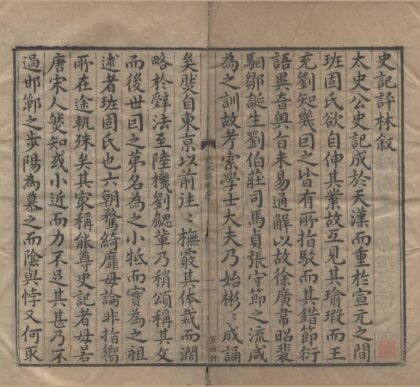 史記評林叙
太史公史記成於天漢而重於宣元之間
班固氏欲自伸其業故互見其瑜瑕而王
充劉知幾囙之皆有所指駁而其錯節衍
語異音奧旨未易通解以故徐廣韋昭裴
駰鄒誕生劉伯莊司馬貞張守節之流咸
為之訓故考索學士大夫乃始彬〻成誦
矣然自東京以前往〻其體裁而濶
略於辭法至陸機劉勰軰乃稍頌稱其文
而後世囙之第名為之小牴而實為之祖
述者班固氏也六朝騖綺靡毋論非指嚮
所在途軌殊矣其最稱能尊史記者毋若
唐宋人然知或小近而力不足其甚乃不
過邯鄲之步陽為慕之而陰與悖又何取